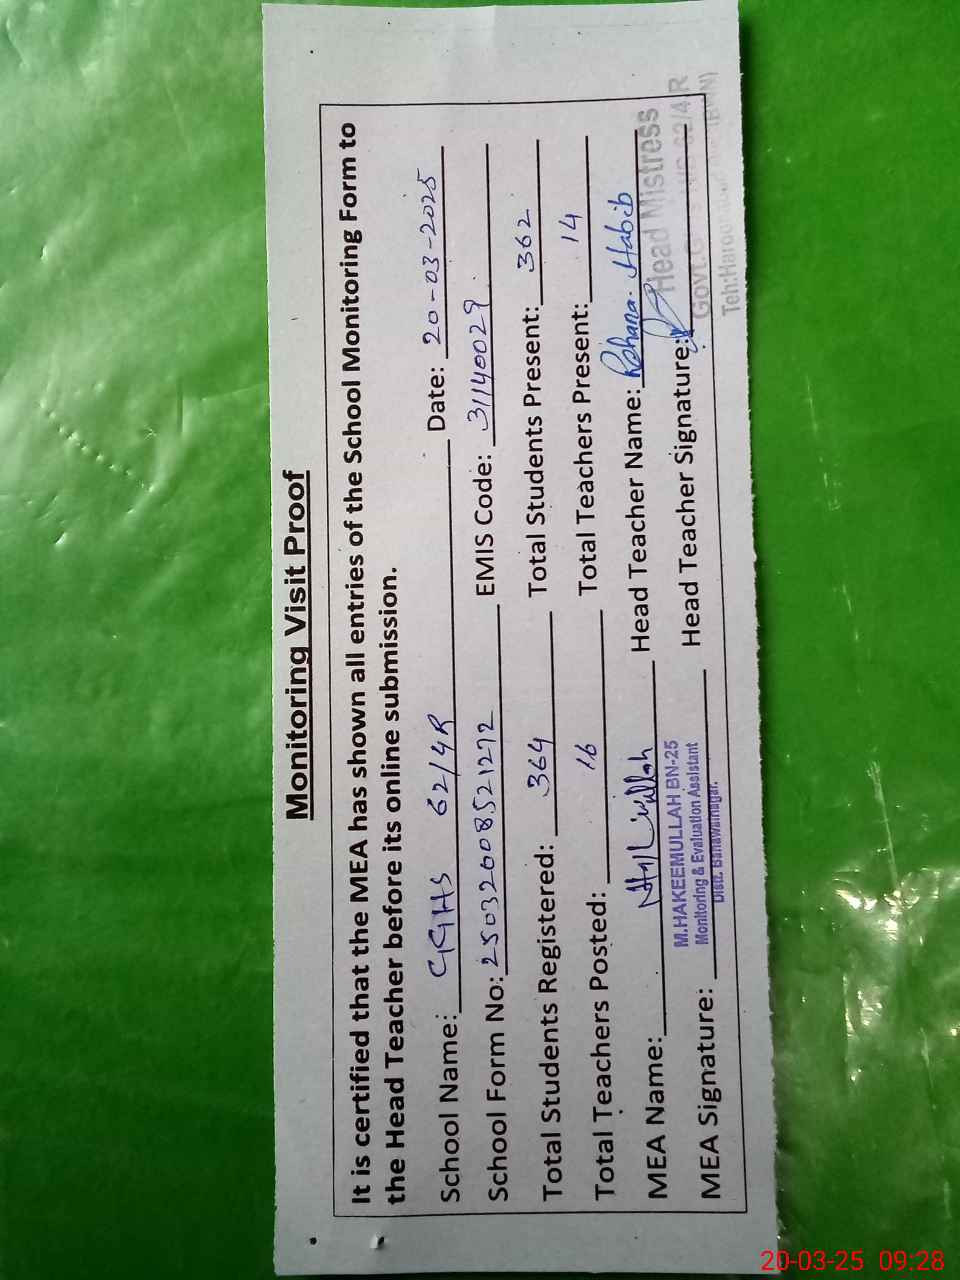 Monitoring Visit Proof
It is certified that the MEA has shown all entries of the School Monitoring Form to
the Head Teacher before its online submission.
School Name: GGHS 62/4R Date: 20-03-2025
School Form No: 25032608521272 EMIS Code: 31140029
Total Students Registered: 364 Total Students Present: 362
Total Teachers Posted: 16 Total Teachers Present: 14
MEA Name: Head Teacher Name: Rehana Habib
M.HAKEEMULLAH BN-25
Monitoring & Evaluation Assistant
Distt. Bahawalnagar.
MEA Signature: Head Teacher Signature:
Head Mistress
Govt.G 62/4-R
Teh:Haroonabad (BWN)
20-03-25 09:28